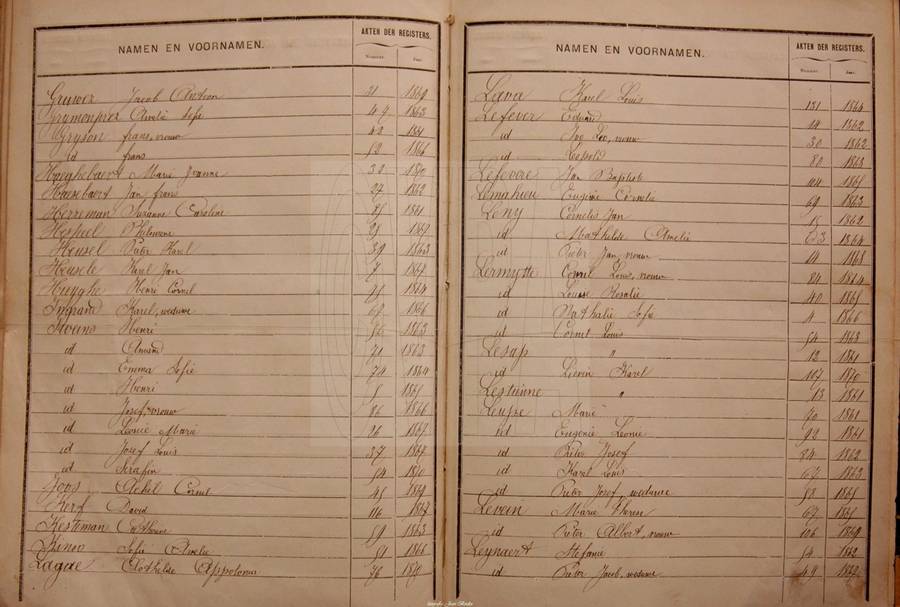 NAMEN EN VOORNAMEN. AKTEN DER REGISTERS.
Nummer. Jaar.
Gruwez Jacob Antoon 21 1869
Grymonprez Amelie Sofie 47 1863
Gryson frans, vrouw 42 1861
id frans 52 1866
Haeghebaert Marie Joanne 30 1870
Haesebaert Jan frans 27 1862
Herreman Susanna Caroline 25 1861
Heursel Philomene 1867
Heusel Pieter Karel 39 1863
Heusele Karel Jan 7 1867
Heyghe Henri Cornel 1864
Ingrand Karel, weduwe 1866
Stevens Henri 86 1863
id Amand 71 1863
id Emma Sofie 74 1864
id Henri 8 1865
id Josef, vrouw 86 1866
id Leonie Marie 26 1867
id Josef Louis 37 1867
id Serafin 54 1870
Joos Achiel Cornel 45 1869
Kerf David 116 1867
Kesteman Cathrine 59 1863
Kino Sofie Amelie 51 1866
Lagae Clothilde Appolonia 76 1870
NAMEN EN VOORNAMEN. AKTEN DER REGISTERS.
Nummer. Jaar.
Lava Karel Louis 131 1864
Lefever Eduard 14 1862
id Ivo Leo, vrouw 30 1862
id Leopold 80 1863
Lefevre Jan Baptist 104 1865
Lemahieu Eugenie Cornelis 69 1863
Leny Cornelis Jan 18 1862
id Mathilde Amelie 63 1864
id Pieter Jan, vrouw 14 1868
Lermytte Cornil Louis, vrouw 84 1864
id Louise Rosalie 40 1865
id Nathalie Sofie 4 1866
id Cornil Louis 54 1863
Lesap " 12 1861
id Lievin Karel 107 1870
Lestienne " 13 1861
Leupe Marie 90 1861
id Eugenie Leonie 92 1861
id Pieter Josef 24 1862
id Karel Louis 67 1863
id Pieter Josef, weduwe 53 1865
Levein Marie Therese 67 1865
id Pieter Albert, vrouw 106 1869
Leynaert Stefanie 54 1862
id Pieter Jacob, weduwe 49